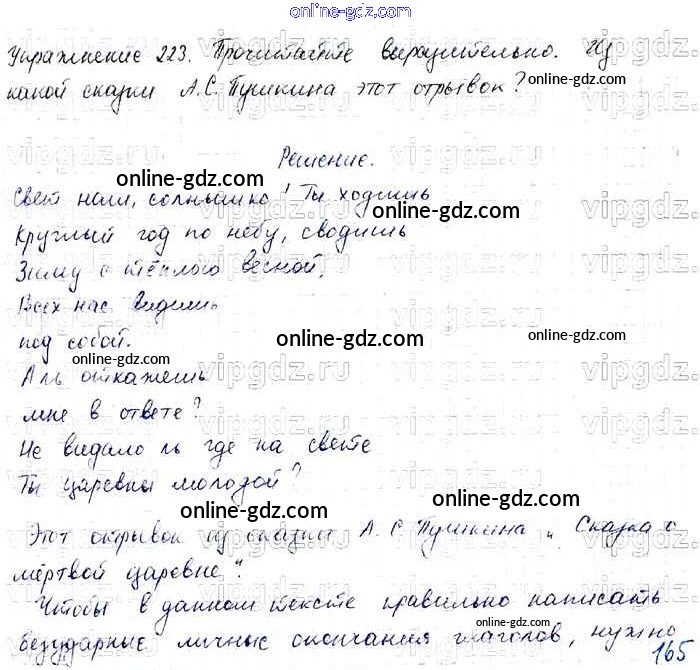 online-gdz.com
Упражнение 223. Прочитайте выразительно. Из
online-gdz.com
какой сказки А.С. Пушкина этот отрывок?
Решение.
online-gdz.com
Свет наш, солнышко! Ты ходишь
online-gdz.com
Круглый год по небу, сводишь
Зиму с тёплою весной,
Всех нас видишь
под собой.
online-gdz.com
online-gdz.com
online-gdz.com
Аль откажешь
мне в ответе?
Не видало ль где на свете
Ты царевны молодой?
online-gdz.com
online-gdz.com
Этот отрывок из сказки А. С. Пушкина „Сказка о
мёртвой царевне".
Чтобы в данном тексте правильно написать
безударные личные окончания глаголов, нужно
165
vipgdz.ru vipgdz.ru vipgdz